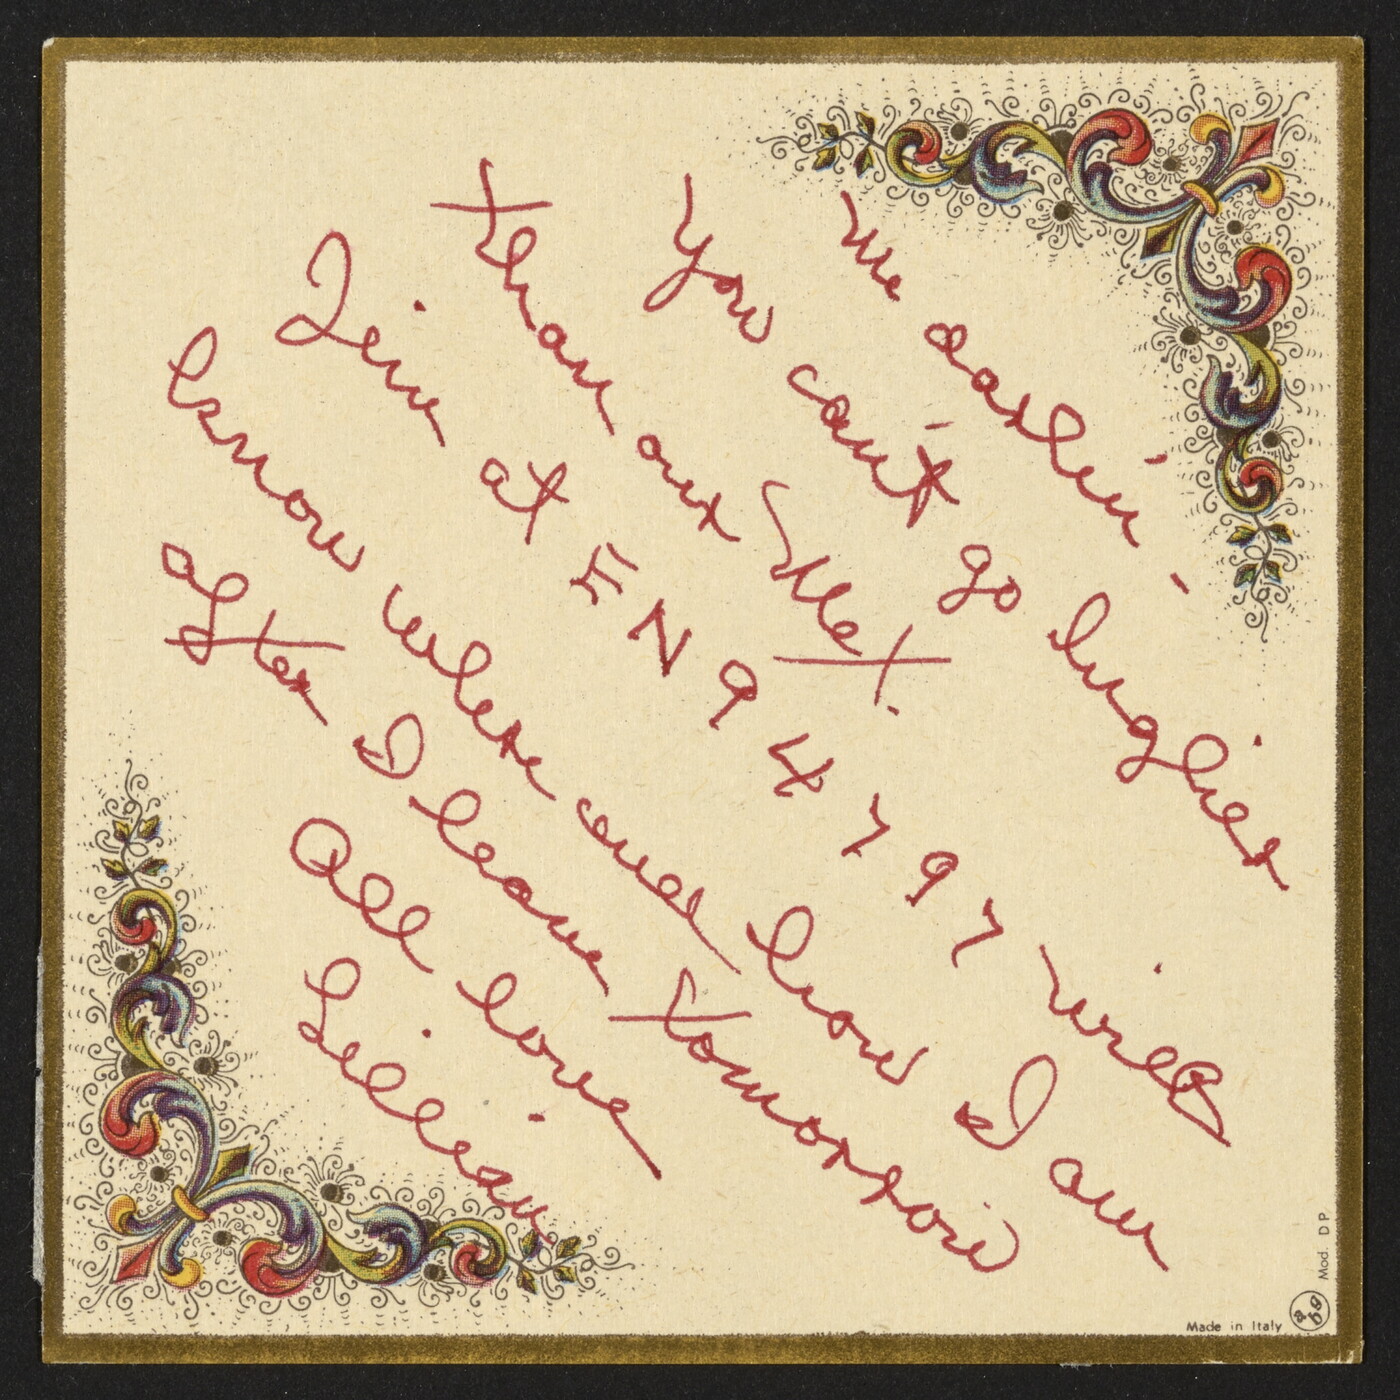 Me darlin' -
You can't go higher
than our
Jim at EN 9 4797 will
know where and how I am
after I leave tomorrow
All love
Lillian
Made in Italy
Mod. DP